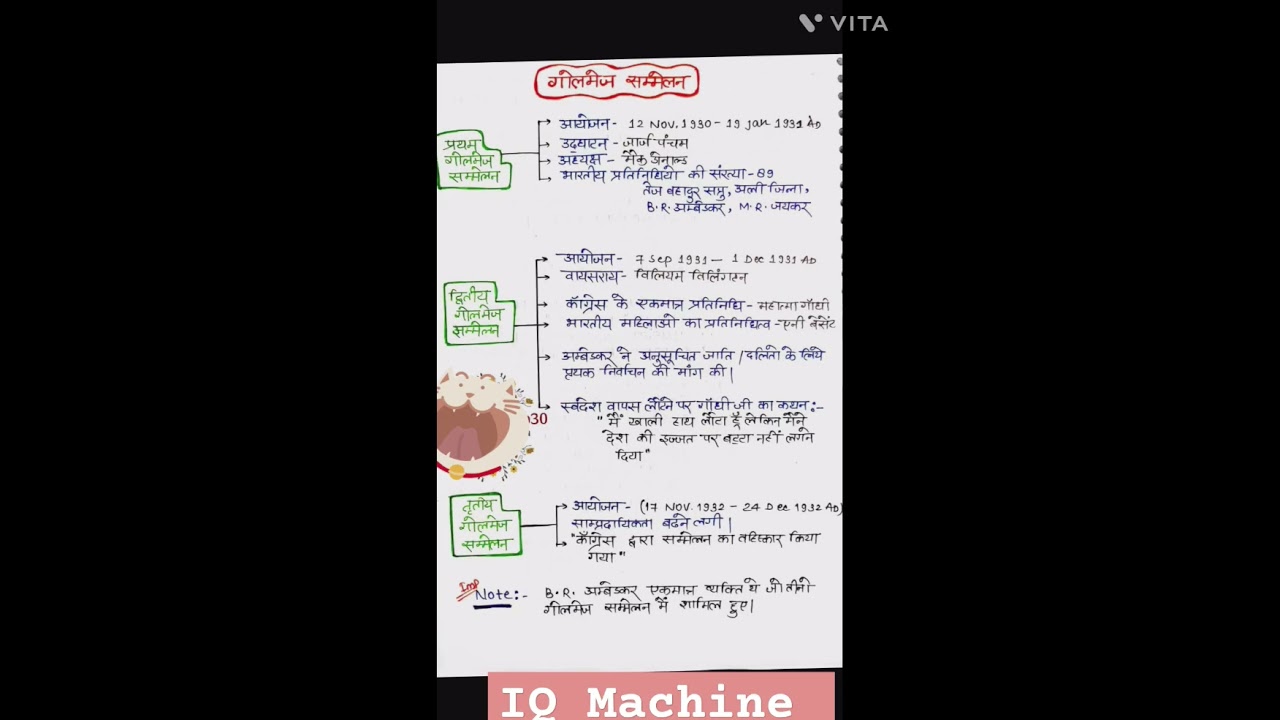 VITA
गोलमेज सम्मेलन
प्रथम
गोलमेज
सम्मेलन
आयोजन - 12 NOV. 1930 - 19 Jan 1931 AD
उद्घाटन - जार्ज पंचम
अध्यक्ष - मैक डोनाल्ड
भारतीय प्रतिनिधियों की संख्या - 89
तेज बहादुर सप्रु, अली जिन्ना,
B.R. अम्बेडकर, M.R. जयकर
द्वितीय
गोलमेज
सम्मेलन
आयोजन - 7 Sep 1931 - 1 Dec 1931 AD
वायसराय - विलियम विलिंगटन
काँग्रेस के एकमात्र प्रतिनिधि - महात्मा गाँधी
भारतीय महिलाओ का प्रतिनिधित्व - एनी बेसेंट
अम्बेडकर ने अनुसूचित जाति / दलितो के लिये
पृथक निर्वाचन की मांग की |
स्वदेश वापस लौटने पर गाँधी जी का कथन :-
" मैं खाली हाथ लौटा हूँ लेकिन मैंने
देश की इज्जत पर बट्टा नहीं लगने
दिया "
030
तृतीय
गोलमेज
सम्मेलन
आयोजन - (17 NOV. 1932 - 24 Dec 1932 AD)
साम्प्रदायिकता बढने लगी |
"काँग्रेस द्वारा सम्मेलन का बहिष्कार किया
गया "
Imp
Note :- B.R. अम्बेडकर एकमात्र व्यक्ति थे जो तीनो
गोलमेज सम्मेलन में शामिल हुए |
IQ Machine